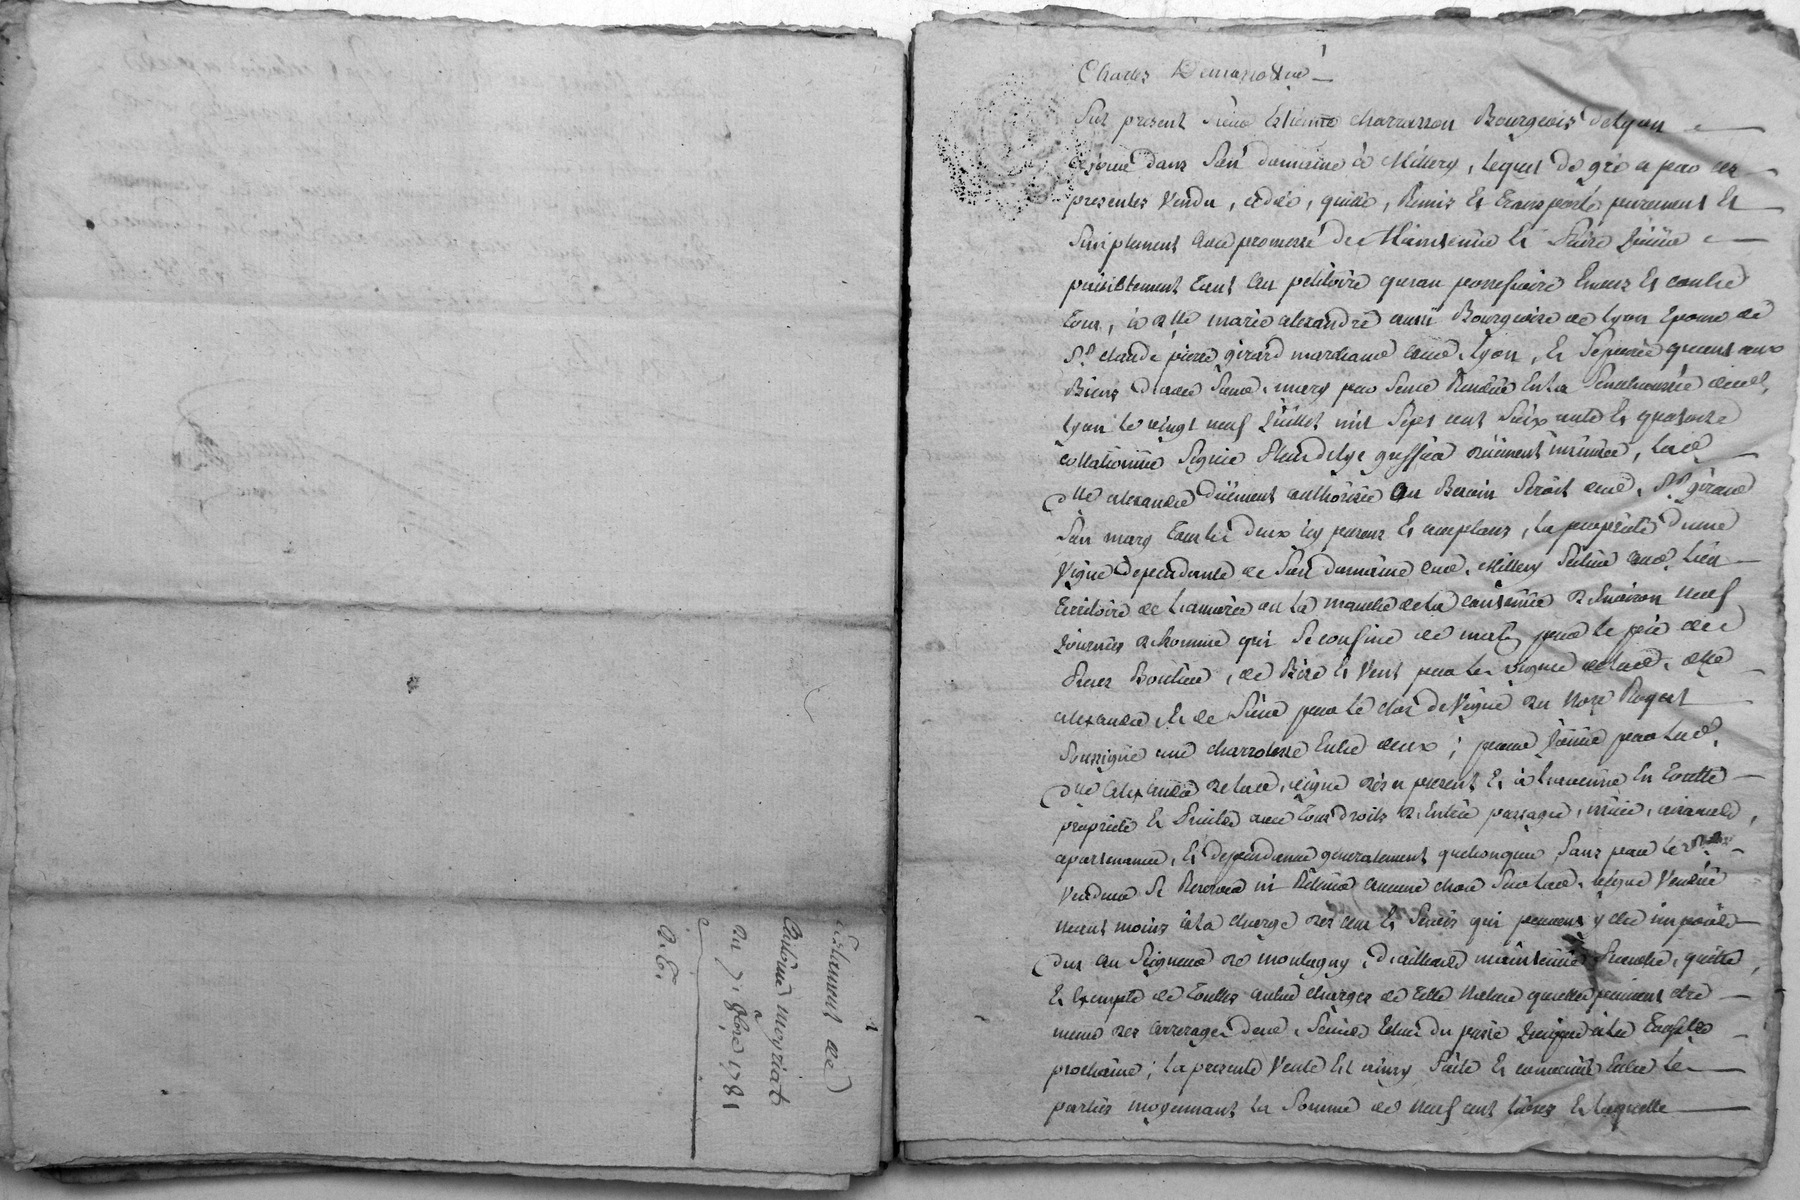 testament de
Antoine meyriat
du 7. 9bre 1781
Charles
fut present sieur Estienne charrasson Bourgeois de Lyon
dans son domaine à Millery, lequel de gré a par ces
presentes vendu, cedé, quitté, Remis et transporté purement et
simplement avec promesse de Maintenir et faire Jouir
paisiblement tant au petitoire quau possessoire Envers et contre
tous, à dlle marie alexandre aussi Bourgeoise de Lyon Epouse de
sr claude pierre girard marchand aud. Lyon, et separée quant aux
Biens d'avec sond. mary par sentence Rendue En la senechaussée dud.
Lyon le vingt neuf Juillet mil sept cent soixante et quatorze
collationnée signée greffier duement insinuée, lad.
dlle alexandre duement authorisée au Besoin seroit dud. sr girard
son mary tous les deux icy presens et acceptans, la propriété d'une
vigne dependante de son domaine aud. Millery située aud. lieu
territoire de ou la de la contenue d'Environ neuf
Journées d'homme qui se confine de matin par le pré de
Boulieu, de Bize et vent par les vignes de lad. dlle
alexandre, et de soir par le clos de vigne du Nore Roget
soussigné une charriere Entre deux; pour Jouir par lad.
dlle alexandre de lad. vigne dès a present et à l'avenir En toutte
propriété et avec tous droits d'Entrée passages, aisances,
apartenances, et dependances generalement quelconques, sans par le
vendeur se Reserver ni Retenir aucune chose sur lad. vigne vendue
neant moins à la charge des cens et servis qui peuvent y etre imposés
dus au seigneur de montagny, d'ailleurs maintenue franche, quitte,
et Exempte de touttes autres charges de telle Nature quelles puissent etre
meme des arrerages desd. servis Echus du passé Jusques à la
prochaine; la presente vente Est ainsy faite et convenue Entre les
parties moyennant la somme de neuf cent livres Et laquelle